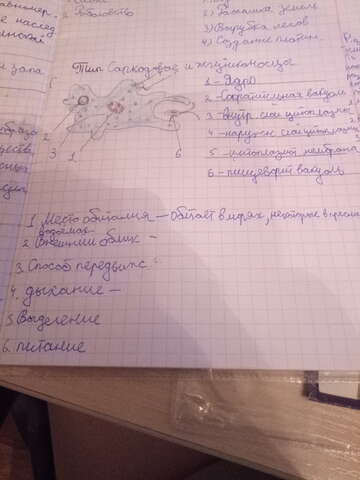 2) Рыболовство
2) Распашка земель
3) Вырубка лесов
4) Создание плотин
Тип Саркодовые и жгутиконосцы
1 - Ядро
2 - Сократительная вакуоль
3 - внутр слой цитоплазмы
4 - наружн слой цитоплазмы
5 - цитоплазмат мембрана
6 - пищеварит вакуоль
2
3
1
6
1. Место обитания - Обитает в морях, некоторые в пресных
водоёмах
2. Внешний облик -
3. Способ передвиж -
4. дыхание -
5. Выделение
6. питание